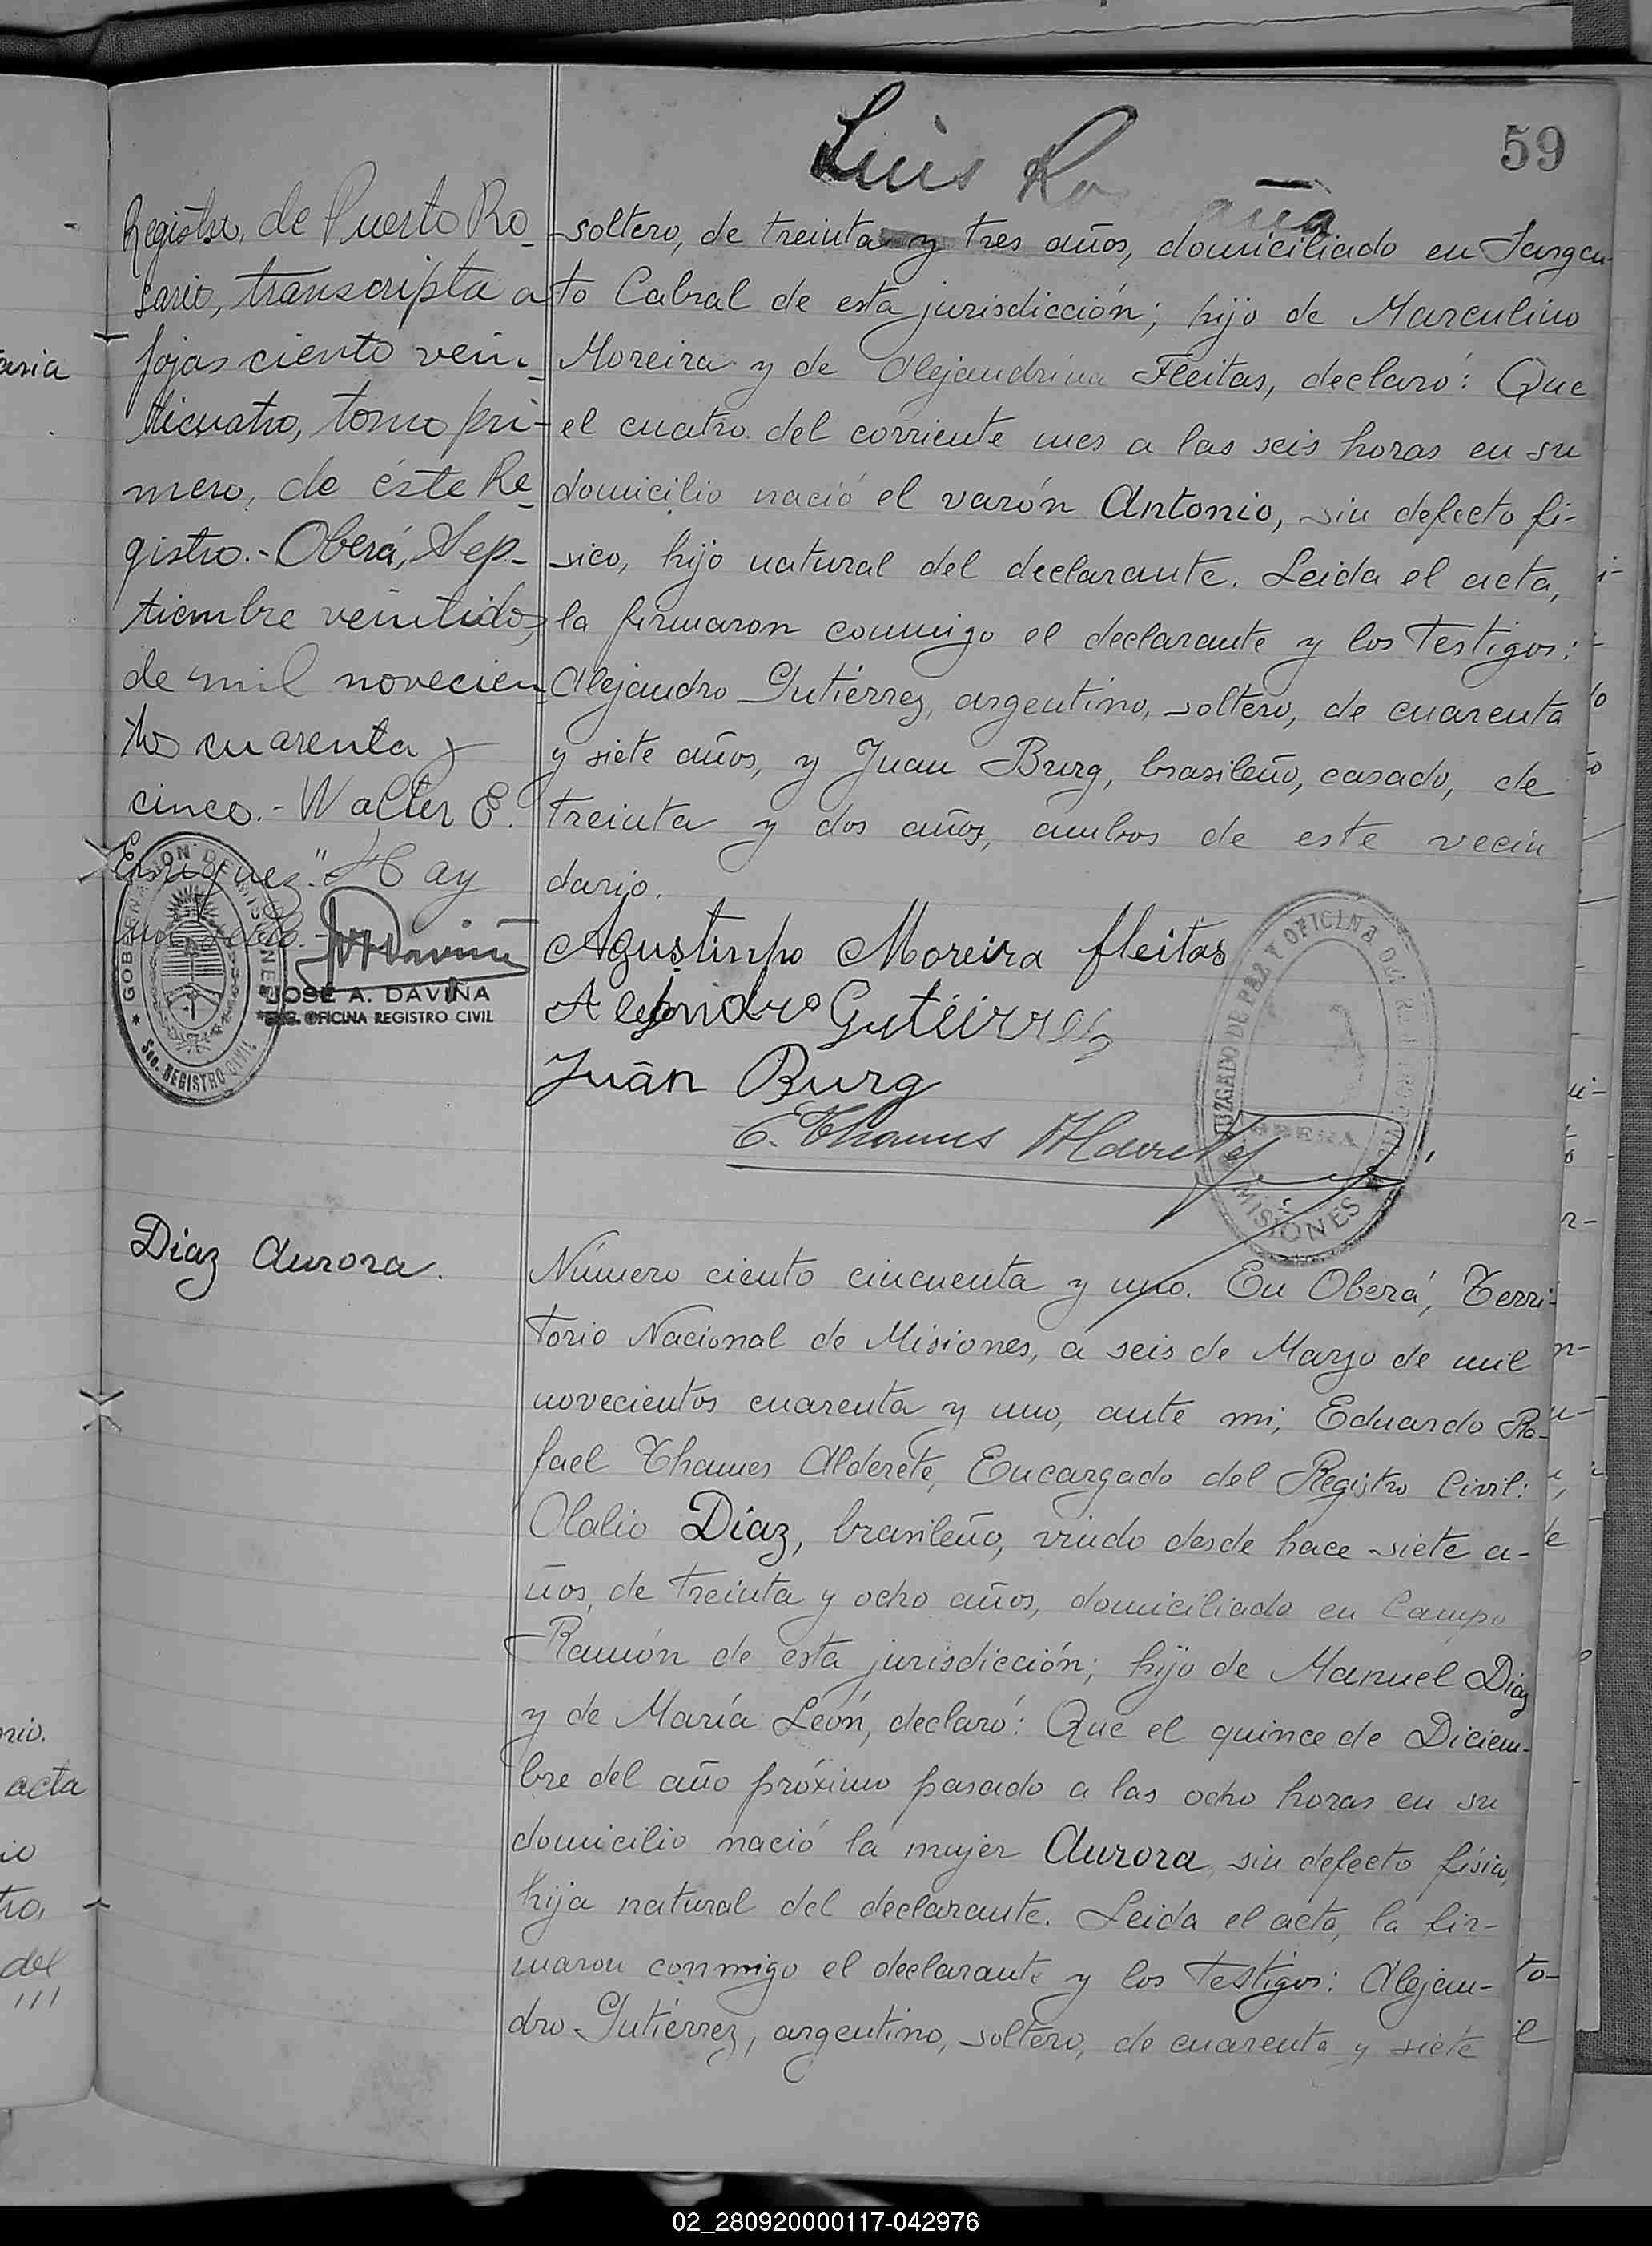 59
Luis Ro aña
Registro, de Puerto Ro-
sario, transcripta a
fojas ciento vein-
ticuatro, tomo pri-
mero, de éste Re-
gistro.- Oberá, Sep-
tiembre veintidos,
de mil novecien-
tos cuarenta y
cinco.- Walter E.
Enriquez." Hay
un sello.-
GOBERNACION DE MISIONES
Sec. REGISTRO CIVIL
JOSE A. DAVIÑA
OFICINA REGISTRO CIVIL
soltero, de treinta y tres años, domiciliado en Sargen-
to Cabral de esta jurisdicción; hijo de Marculino
Moreira y de Alejandrina Fleitas, declaró: Que
el cuatro del corriente mes a las seis horas en su
domicilio nació el varón Antonio, sin defecto fi-
sico, hijo natural del declarante. Leida el acta,
la firmaron conmigo el declarante y los testigos:
Alejandro Gutiérrez, argentino, soltero, de cuarenta
y siete años, y Juan Burg, brasileño, casado, de
treinta y dos años, ambos de este vecin
dario.
Moreira fleitas
Gutiérrez
Juān Burg
E. Thames Alderete
JUZGADO DE PAZ Y OFICINA DEL REGISTRO CIVIL
OBERA
MISIONES
Diaz Aurora.
Número ciento cincuenta y uno. En Oberá, Terri-
torio Nacional de Misiones, a seis de Marzo de mil
novecientos cuarenta y uno, ante mi, Eduardo Ra-
fael Thames Alderete, Encargado del Registro Civil:
Olalio Díaz, brasileño, viudo desde hace siete a-
ños, de treinta y ocho años, domiciliado en Campo
Ramón de esta jurisdicción; hijo de Manuel Diaz
y de María León, declaró: Que el quince de Diciem-
bre del año próximo pasado a las ocho horas en su
domicilio nació la mujer Aurora, sin defecto físico,
hija natural del declarante. Leida el acta, la fir-
maron conmigo el declarante y los testigos: Alejan-
dro Gutiérrez, argentino, soltero, de cuarenta y siete
acta
del
02_280920000117-042976